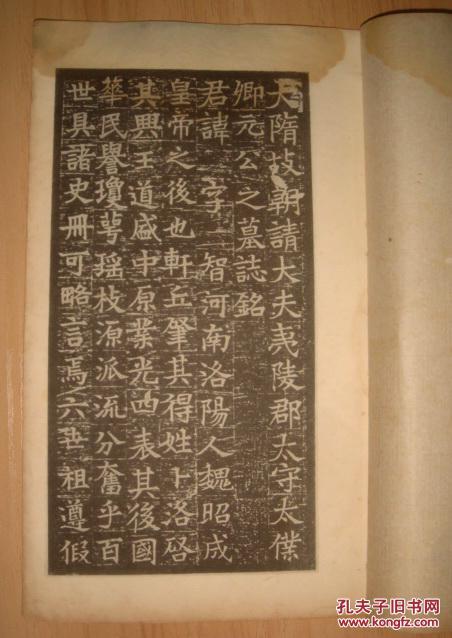 大隋故朝請大夫夷陵郡太守太僕
卿元公之墓誌銘
君諱□字□智河南洛陽人魏昭成
皇帝之後也軒丘肇其得姓卜洛啓
其興王道盛中原業光四表其後國
華民譽瓊萼瑶枝源派流分奮乎百
世具諸史冊可略言焉六世祖遵假
孔夫子旧书网
kongfz.com